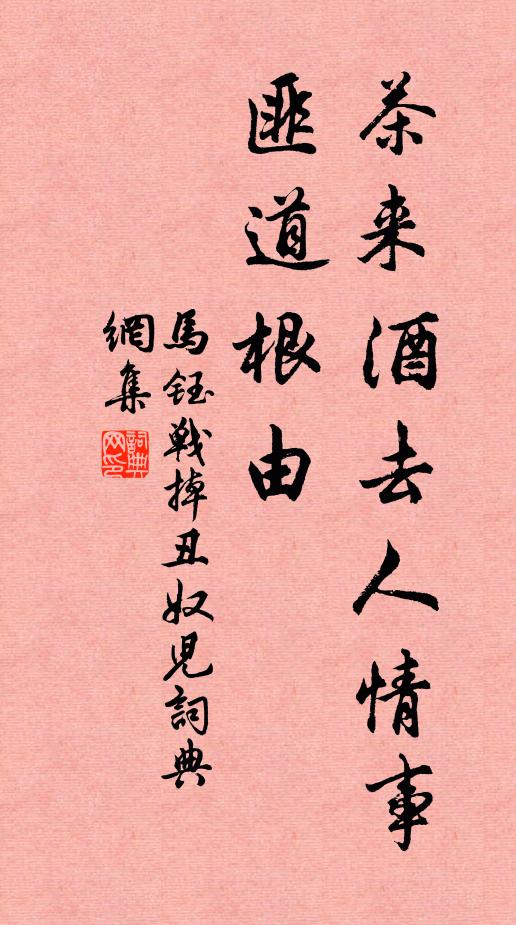 茶来酒去人情事
匪道根由
馬鈺戰掉丑奴児詞典
網集
詞典
网印